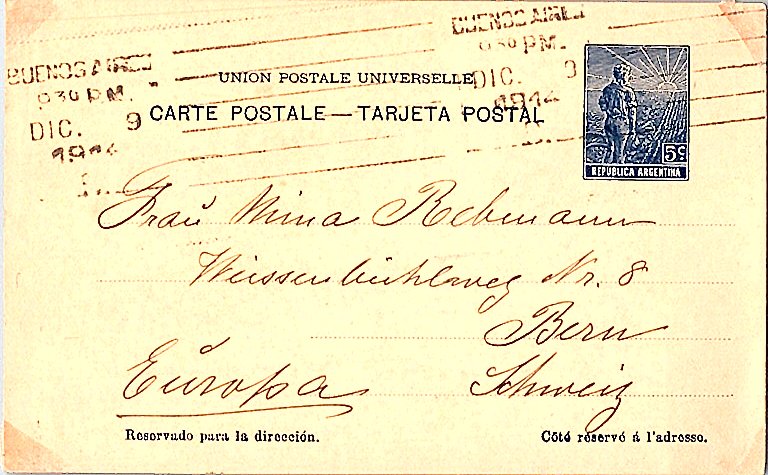 BUENOS AIRES
930 P.M.
DIC. 9
1914
BUENOS AIRES
930 P.M.
DIC. 9
1914
UNION POSTALE UNIVERSELLE
CARTE POSTALE — TARJETA POSTAL
5c
REPUBLICA ARGENTINA
Frau Mina Rebmann
Weissenbühlweg Nr. 8
Bern
Europa Schweiz
Reservado para la dirección.
Côté réservé á l'adresse.